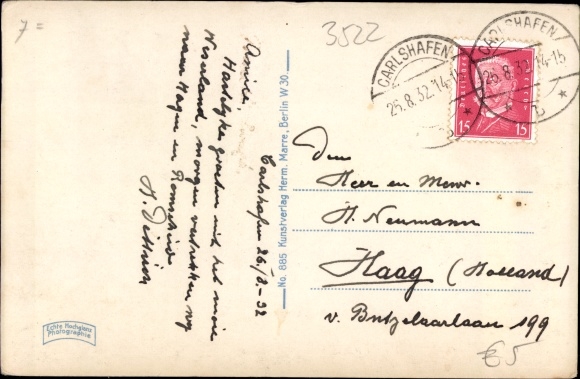 7=
3522
Carlshafen 26/8-32
Amice,
Hartelijke groeten uit het mooie
Weserland, morgen vertrekken wij
naar Hagen en Remscheid
H. Dittrich
No. 885 Kunstverlag Herm. Marre, Berlin W 30.
Echte Hochglanz
Photographie
CARLSHAFEN
25.8.32.14-15
CARLSHAFEN
25.8.32.14-15
15 15
Den
Heer en Mevr.
H. Neumann
Haag (Holland)
v. Boetzelaerlaan 199
€5